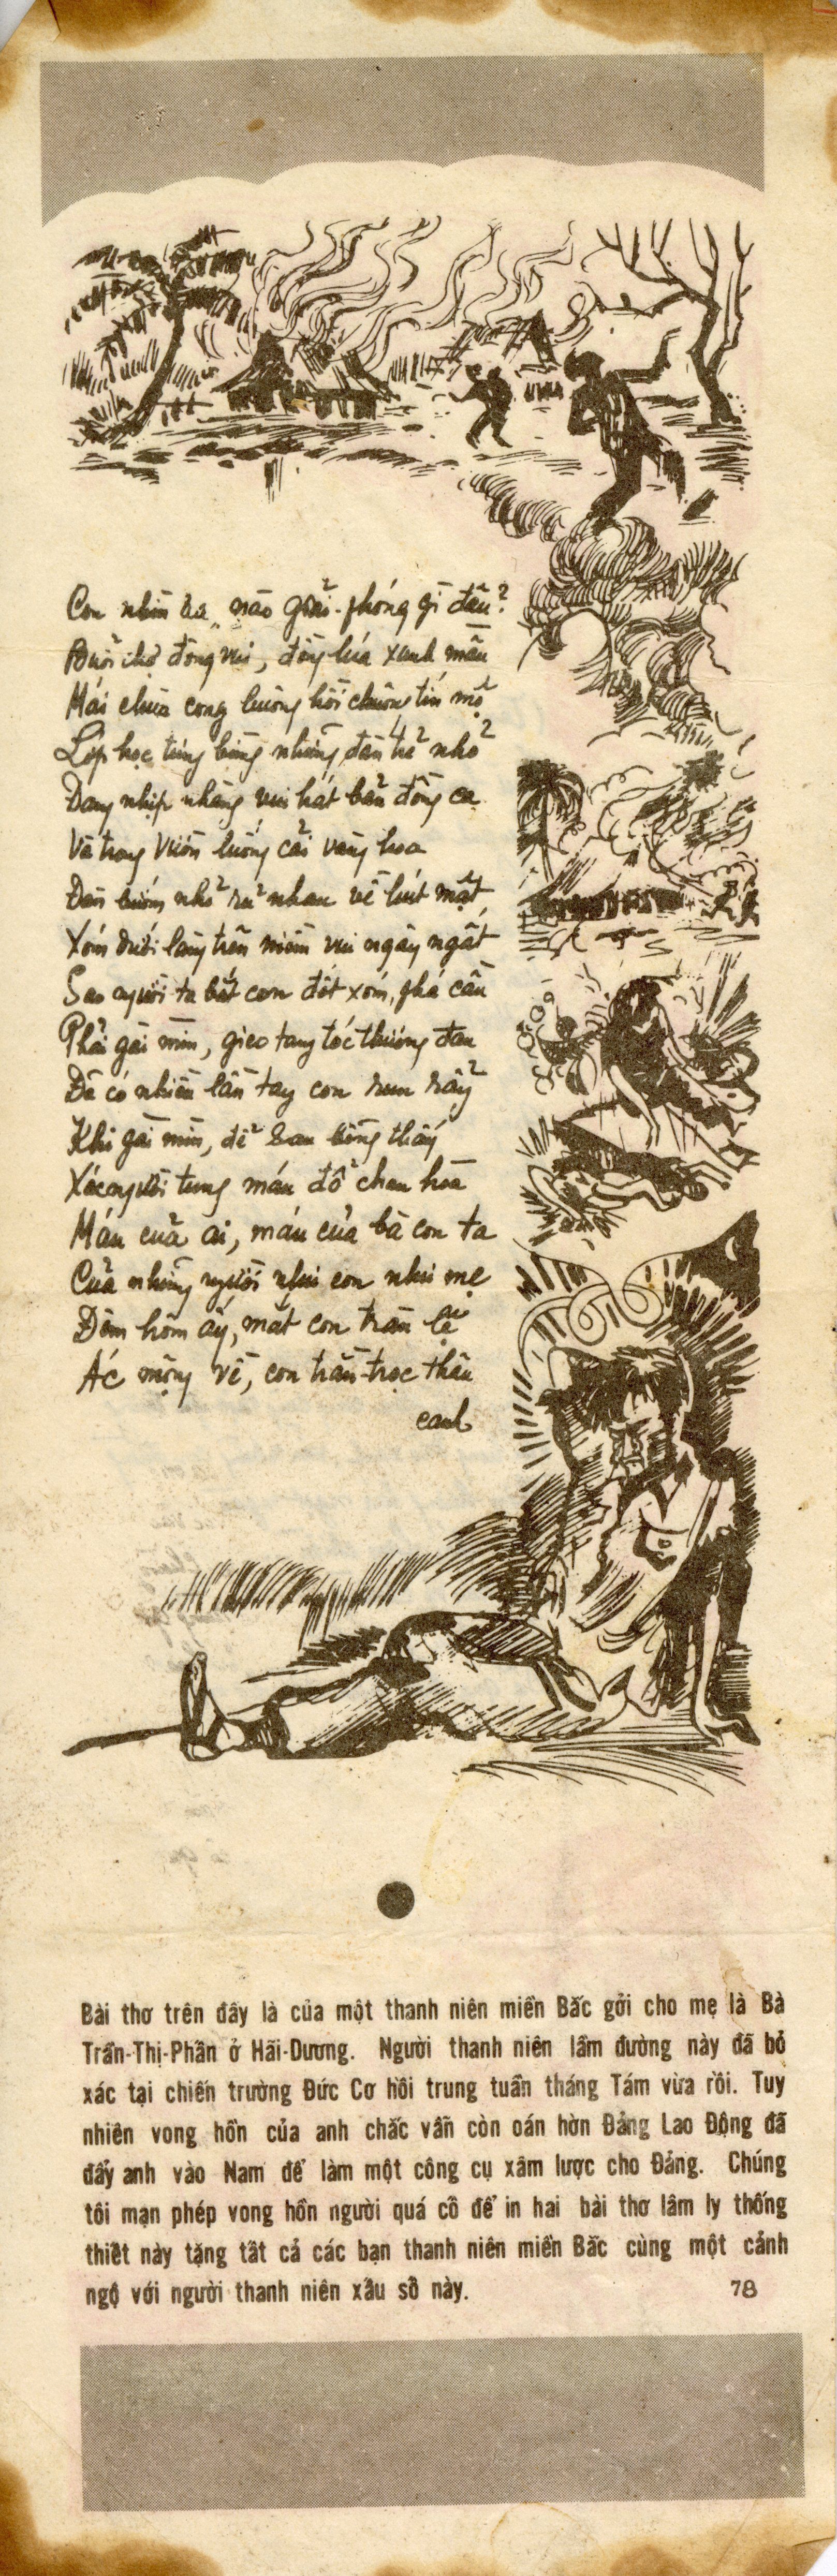 Con nhìn ra, nào giải-phóng gì đâu?
Buổi chợ đông vui, đồng lúa xanh mầu
Mái chùa cong buông hồi chuông tín mộ
Lớp học tưng bừng những đàn trẻ nhỏ
Đang nhịp nhàng vui hát bản đồng ca
Và trong vườn luống cải vàng hoa
Đàn bướm nhỏ rủ nhau về hút mật
Xóm dưới làng trên niềm vui ngây ngất
Sao người ta bắt con đốt xóm, phá cầu
Phải gài mìn, gieo tang tóc thương đau
Đã có nhiều lần tay con run rẩy
Khi gài mìn, để sau bỗng thấy
Xác người tung máu đổ chan hòa
Máu của ai, máu của bà con ta
Của những người như con như mẹ
Đêm hôm ấy, mắt con tràn lệ
Ác mộng về, con trằn-trọc thâu
canh
Bài thơ trên đây là của một thanh niên miền Bắc gởi cho mẹ là Bà
Trần-Thị-Phần ở Hãi-Dương. Người thanh niên lầm đường này đã bỏ
xác tại chiến trường Đức Cơ hồi trung tuần tháng Tám vừa rồi. Tuy
nhiên vong hồn của anh chắc vẫn còn oán hờn Đảng Lao Động đã
đẩy anh vào Nam để làm một công cụ xâm lược cho Đảng. Chúng
tôi mạn phép vong hồn người quá cố để in hai bài thơ lâm ly thống
thiết này tặng tất cả các bạn thanh niên miền Bắc cùng một cảnh
ngộ với người thanh niên xấu số này.
78